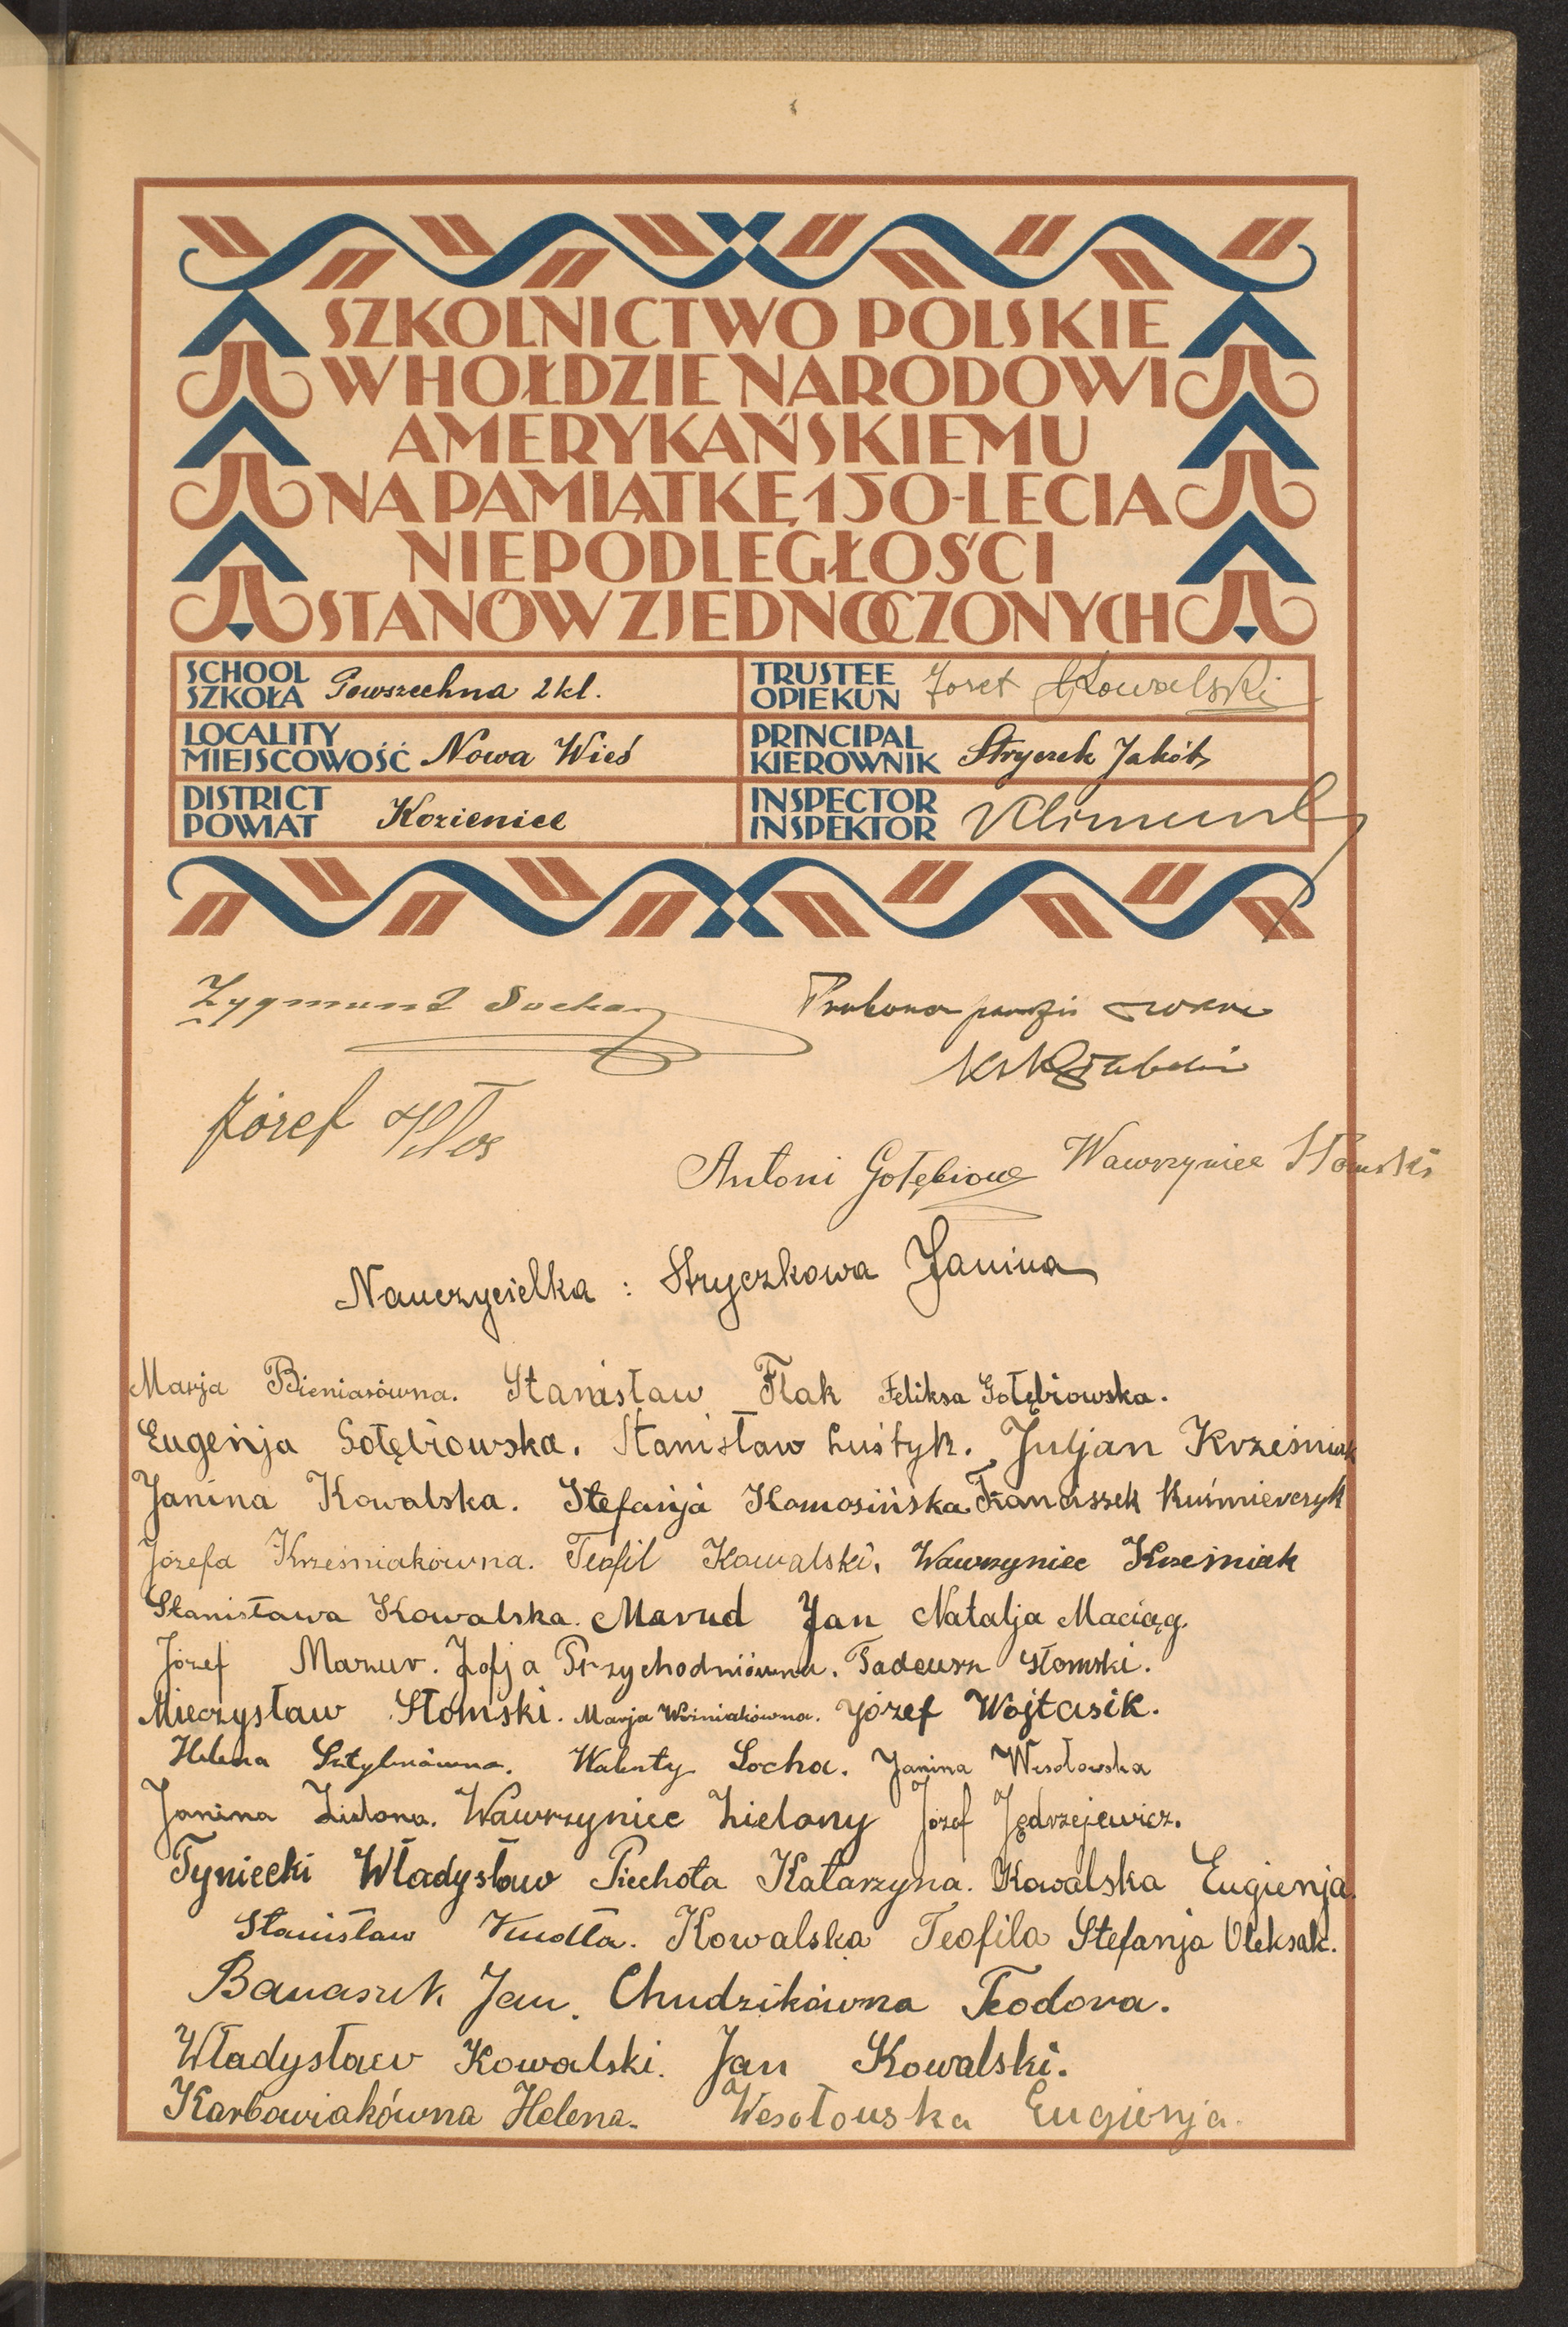 SZKOLNICTWO POLSKIE
W HOŁDZIE NARODOWI
AMERYKAŃSKIEMU
NA PAMIĄTKĘ 150-LECIA
NIEPODLEGŁOŚCI
STANÓW ZJEDNOCZONYCH
SCHOOL
SZKOŁA Powszechna 2 kl.
TRUSTEE
OPIEKUN Józef Kowalski
LOCALITY
MIEJSCOWOŚĆ Nowa Wieś
PRINCIPAL
KIEROWNIK Stryczek Jakób
DISTRICT
POWIAT Kozienice
INSPECTOR
INSPEKTOR
Zygmunt Socha
Józef
Antoni Gołębiow Wawrzyniec Słomski
Nauczycielka : Stryczkowa Janina
Marja Bieniasówna. Stanisław Flak Feliksa Gołębiowska.
Eugenja Gołębiowska. Stanisław Luśtyk. Juljan Krześniak
Janina Kowalska. Stefanja Komosińska Franciszek Kuśmierczyk
Józefa Krześniakówna. Teofil Kowalski. Wawrzyniec Krześniak
Stanisława Kowalska. Marud Jan Natalja Maciąg.
Józef Mazur. Zofja Przychodniówna. Tadeusz Słomski.
Mieczysław Słomski. Marja Woźniakówna. Józef Wojtasik.
Helena Walenty Socha. Janina Wesołowska
Janina Zielona. Wawrzyniec Zielony Józef Jędrzejewicz.
Tyniecki Władysław Piechota Katarzyna. Kowalska Eugienja.
Stanisław Kowalska Teofila Stefanja Oleksak.
Banaszek Jan. Chudzikówna Teodora.
Władysław Kowalski. Jan Kowalski.
Karbowiakówna Helena. Wesołowska Eugienja.